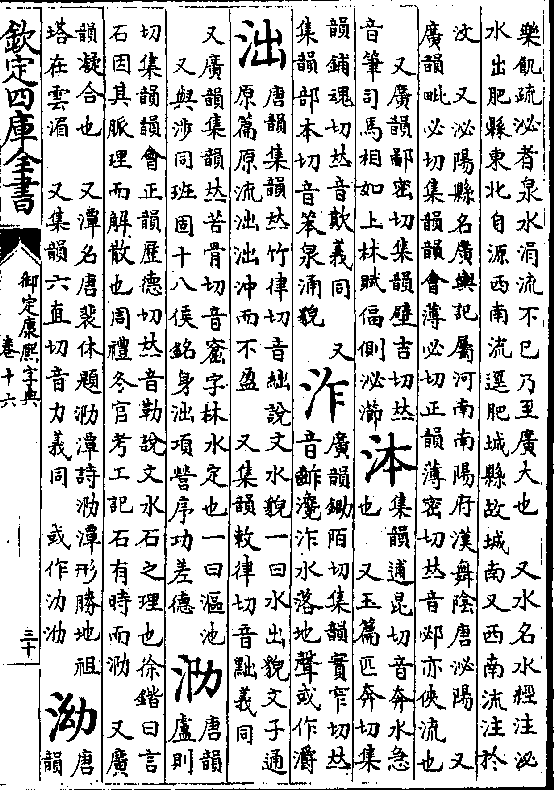 樂飢疏泌者泉水涓流不已乃至廣大也　又水名水經注泌
水出肥縣東北自源西南流逕肥城縣故城南又西南流注於
汶　又泌陽縣名廣輿記屬河南南陽府漢舞陰唐泌陽　又
廣韻毗必切集韻韻會薄必切正韻薄密切𠀤音邲亦俠流也
又廣韻鄙密切集韻壁吉切𠀤
音筆司馬相如上林賦偪側泌㴉
泍
集韻逋昆切音奔水急
也　又玉篇匹奔切集
韻鋪魂切𠀤音歕義同　又
集韻部本切音笨泉涌貌
泎
廣韻鋤陌切集韻實窄切𠀤
音齰瀺泎水落地聲或作灂
泏
唐韻集韻𠀤竹律切音絀說文水貌一曰水出貌文子通
原篇原流泏泏沖而不盈　又集韻敕律切音黜義同
又廣韻集韻𠀤苦骨切音窟字林水定也一曰漚池
又與涉同班固十八侯銘身泏項營序功差德
泐
唐韻
盧則
切集韻韻會正韻歷德切𠀤音勒說文水石之理也徐鍇曰言
石因其脈理而解散也周禮冬官考工記石有時而泐　又廣
韻凝合也　又潭名唐裴休題泐潭詩泐潭形勝地祖
塔在雲湄　又集韻六直切音力義同　或作氻泐
泑
唐
韻
欽定四庫全書
御定康熙字典
卷十六
三十